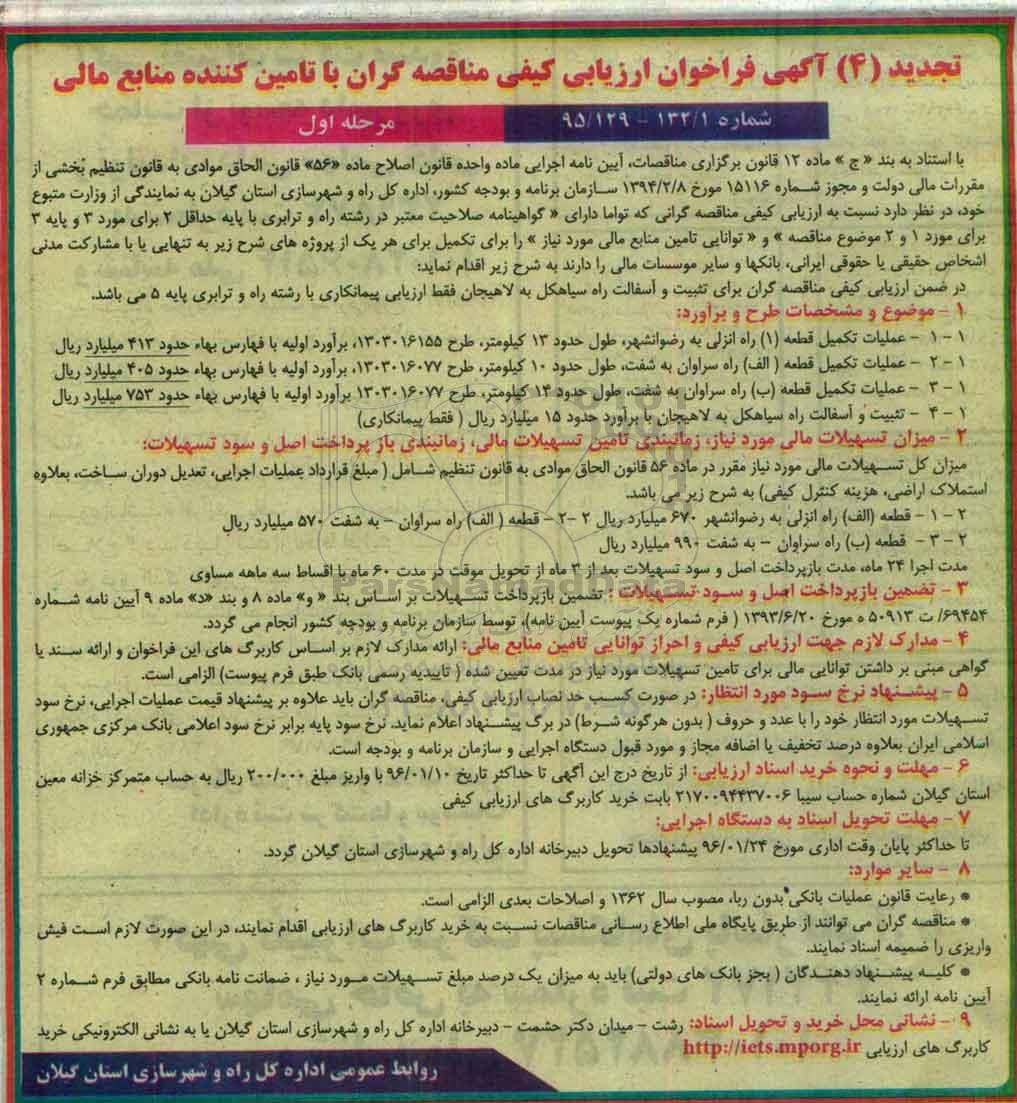 تجدید (۴) آگهی فراخوان ارزیابی کیفی مناقصه گران با تامین کننده منابع مالی
شماره ۱۳۲/۱ - ۹۵/۱۲۹
مرحله اول
با استناد به بند « ج » ماده ۱۲ قانون برگزاری مناقصات، آیین نامه اجرایی ماده واحده قانون اصلاح ماده «۵۶» قانون الحاق موادی به قانون تنظیم بخشی از
مقررات مالی دولت و مجوز شماره ۱۵۱۱۶ مورخ ۱۳۹۴/۲/۸ سازمان برنامه و بودجه کشور، اداره کل راه و شهرسازی استان گیلان به نمایندگی از وزارت متبوع
خود، در نظر دارد نسبت به ارزیابی کیفی مناقصه گرانی که تواما دارای « گواهینامه صلاحیت معتبر در رشته راه و ترابری با پایه حداقل ۲ برای مورد ۳ و پایه ۳
برای مورد ۱ و ۲ موضوع مناقصه » و « توانایی تامین منابع مالی مورد نیاز » را برای تکمیل برای هر یک از پروژه های شرح زیر به تنهایی یا با مشارکت مدنی
اشخاص حقیقی یا حقوقی ایرانی، بانکها و سایر موسسات مالی را دارند به شرح زیر اقدام نماید:
در ضمن ارزیابی کیفی مناقصه گران برای تثبیت و آسفالت راه سیاهکل به لاهیجان فقط ارزیابی پیمانکاری با رشته راه و ترابری پایه ۵ می باشد.
۱ - موضوع و مشخصات طرح و برآورد:
۱ - ۱ - عملیات تکمیل قطعه (۱) راه انزلی به رضوانشهر، طول حدود ۱۳ کیلومتر، طرح ۱۳۰۳۰۱۶۱۵۵، برآورد اولیه با فهارس بهاء حدود ۴۱۳ میلیارد ریال
۱ - ۲ - عملیات تکمیل قطعه ( الف) راه سراوان به شفت، طول حدود ۱۰ کیلومتر، طرح ۱۳۰۳۰۱۶۰۷۷، برآورد اولیه با فهارس بهاء حدود ۴۰۵ میلیارد ریال
۱ - ۳ - عملیات تکمیل قطعه (ب) راه سراوان به شفت، طول حدود ۱۴ کیلومتر، طرح ۱۳۰۳۰۱۶۰۷۷ برآورد اولیه با فهارس بهاء حدود ۷۵۳ میلیارد ریال
۱ - ۴ - تثبیت و آسفالت راه سیاهکل به لاهیجان با برآورد حدود ۱۵ میلیارد ریال ( فقط پیمانکاری)
۲ - میزان تسهیلات مالی مورد نیاز، زمانبندی تامین تسهیلات مالی، زمانبندی باز پرداخت اصل و سود تسهیلات:
میزان کل تسهیلات مالی مورد نیاز مقرر در ماده ۵۶ قانون الحاق موادی به قانون تنظیم شامل ( مبلغ قرارداد عملیات اجرایی، تعدیل دوران ساخت، بعلاوه
استملاک اراضی، هزینه کنترل کیفی) به شرح زیر می باشد.
۲ - ۱ - قطعه (الف) راه انزلی به رضوانشهر ۶۷۰ میلیارد ریال ۲ -۲ - قطعه ( الف) راه سراوان - به شفت ۵۷۰ میلیارد ریال
۲ - ۳ - قطعه (ب) راه سراوان - به شفت ۹۹۰ میلیارد ریال
مدت اجرا ۲۴ ماه، مدت بازپرداخت اصل و سود تسهیلات بعد از ۳ ماه از تحویل موقت در مدت ۶۰ ماه با اقساط سه ماهه مساوی
۳ - تضمین بازپرداخت اصل و سود تسهیلات : تضمین بازپرداخت تسهیلات بر اساس بند « و» ماده ۸ و بند «د» ماده ۹ آیین نامه شماره
۶۹۴۵۴/ ت ۵۰۹۱۳ ه مورخ ۱۳۹۳/۶/۲۰ ( فرم شماره یک پیوست آیین نامه)، توسط سازمان برنامه و بودجه کشور انجام می گردد.
۴ - مدارک لازم جهت ارزیابی کیفی و احراز توانایی تامین منابع مالی: ارائه مدارک لازم بر اساس کاربرگ های این فراخوان و ارائه سند یا
گواهی مبنی بر داشتن توانایی مالی برای تامین تسهیلات مورد نیاز در مدت تعیین شده ( تاییدیه رسمی بانک طبق فرم پیوست) الزامی است.
۵ - پیشنهاد نرخ سود مورد انتظار: در صورت کسب حد نصاب ارزیابی کیفی، مناقصه گران باید علاوه بر پیشنهاد قیمت عملیات اجرایی، نرخ سود
تسهیلات مورد انتظار خود را با عدد و حروف ( بدون هرگونه شرط) در برگ پیشنهاد اعلام نماید. نرخ سود پایه برابر نرخ سود اعلامی بانک مرکزی جمهوری
اسلامی ایران بعلاوه درصد تخفیف یا اضافه مجاز و مورد قبول دستگاه اجرایی و سازمان برنامه و بودجه است.
۶ - مهلت و نحوه خرید اسناد ارزیابی: از تاریخ درج این آگهی تا حداکثر تاریخ ۹۶/۰۱/۱۰ با واریز مبلغ ۲۰۰/۰۰۰ ریال به حساب متمرکز خزانه معین
استان گیلان شماره حساب سیبا ۲۱۷۰۰۹۴۴۳۷۰۰۶ بابت خرید کاربرگ های ارزیابی کیفی
۷ - مهلت تحویل اسناد به دستگاه اجرایی:
تا حداکثر پایان وقت اداری مورخ ۹۶/۰۱/۲۴ پیشنهادها تحویل دبیرخانه اداره کل راه و شهرسازی استان گیلان گردد.
۸ - سایر موارد:
* رعایت قانون عملیات بانکی بدون ربا، مصوب سال ۱۳۶۲ و اصلاحات بعدی الزامی است.
* مناقصه گران می توانند از طریق پایگاه ملی اطلاع رسانی مناقصات نسبت به خرید کاربرگ های ارزیابی اقدام نمایند، در این صورت لازم است فیش
واریزی را ضمیمه اسناد نمایند.
* کلیه پیشنهاد دهندگان ( بجز بانک های دولتی) باید به میزان یک درصد مبلغ تسهیلات مورد نیاز ، ضمانت نامه بانکی مطابق فرم شماره ۲
آیین نامه ارائه نمایند.
۹ - نشانی محل خرید و تحویل اسناد: رشت - میدان دکتر حشمت - دبیرخانه اداره کل راه و شهرسازی استان گیلان یا به نشانی الکترونیکی خرید
کاربرگ های ارزیابی http://iets.mporg.ir
روابط عمومی اداره کل راه و شهرسازی استان گیلان